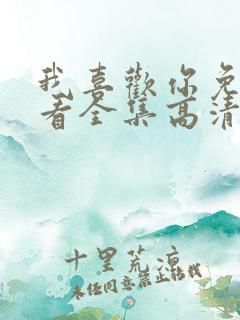 我喜歡你免
看全集高清
十里荒凉
未经同意禁止转载